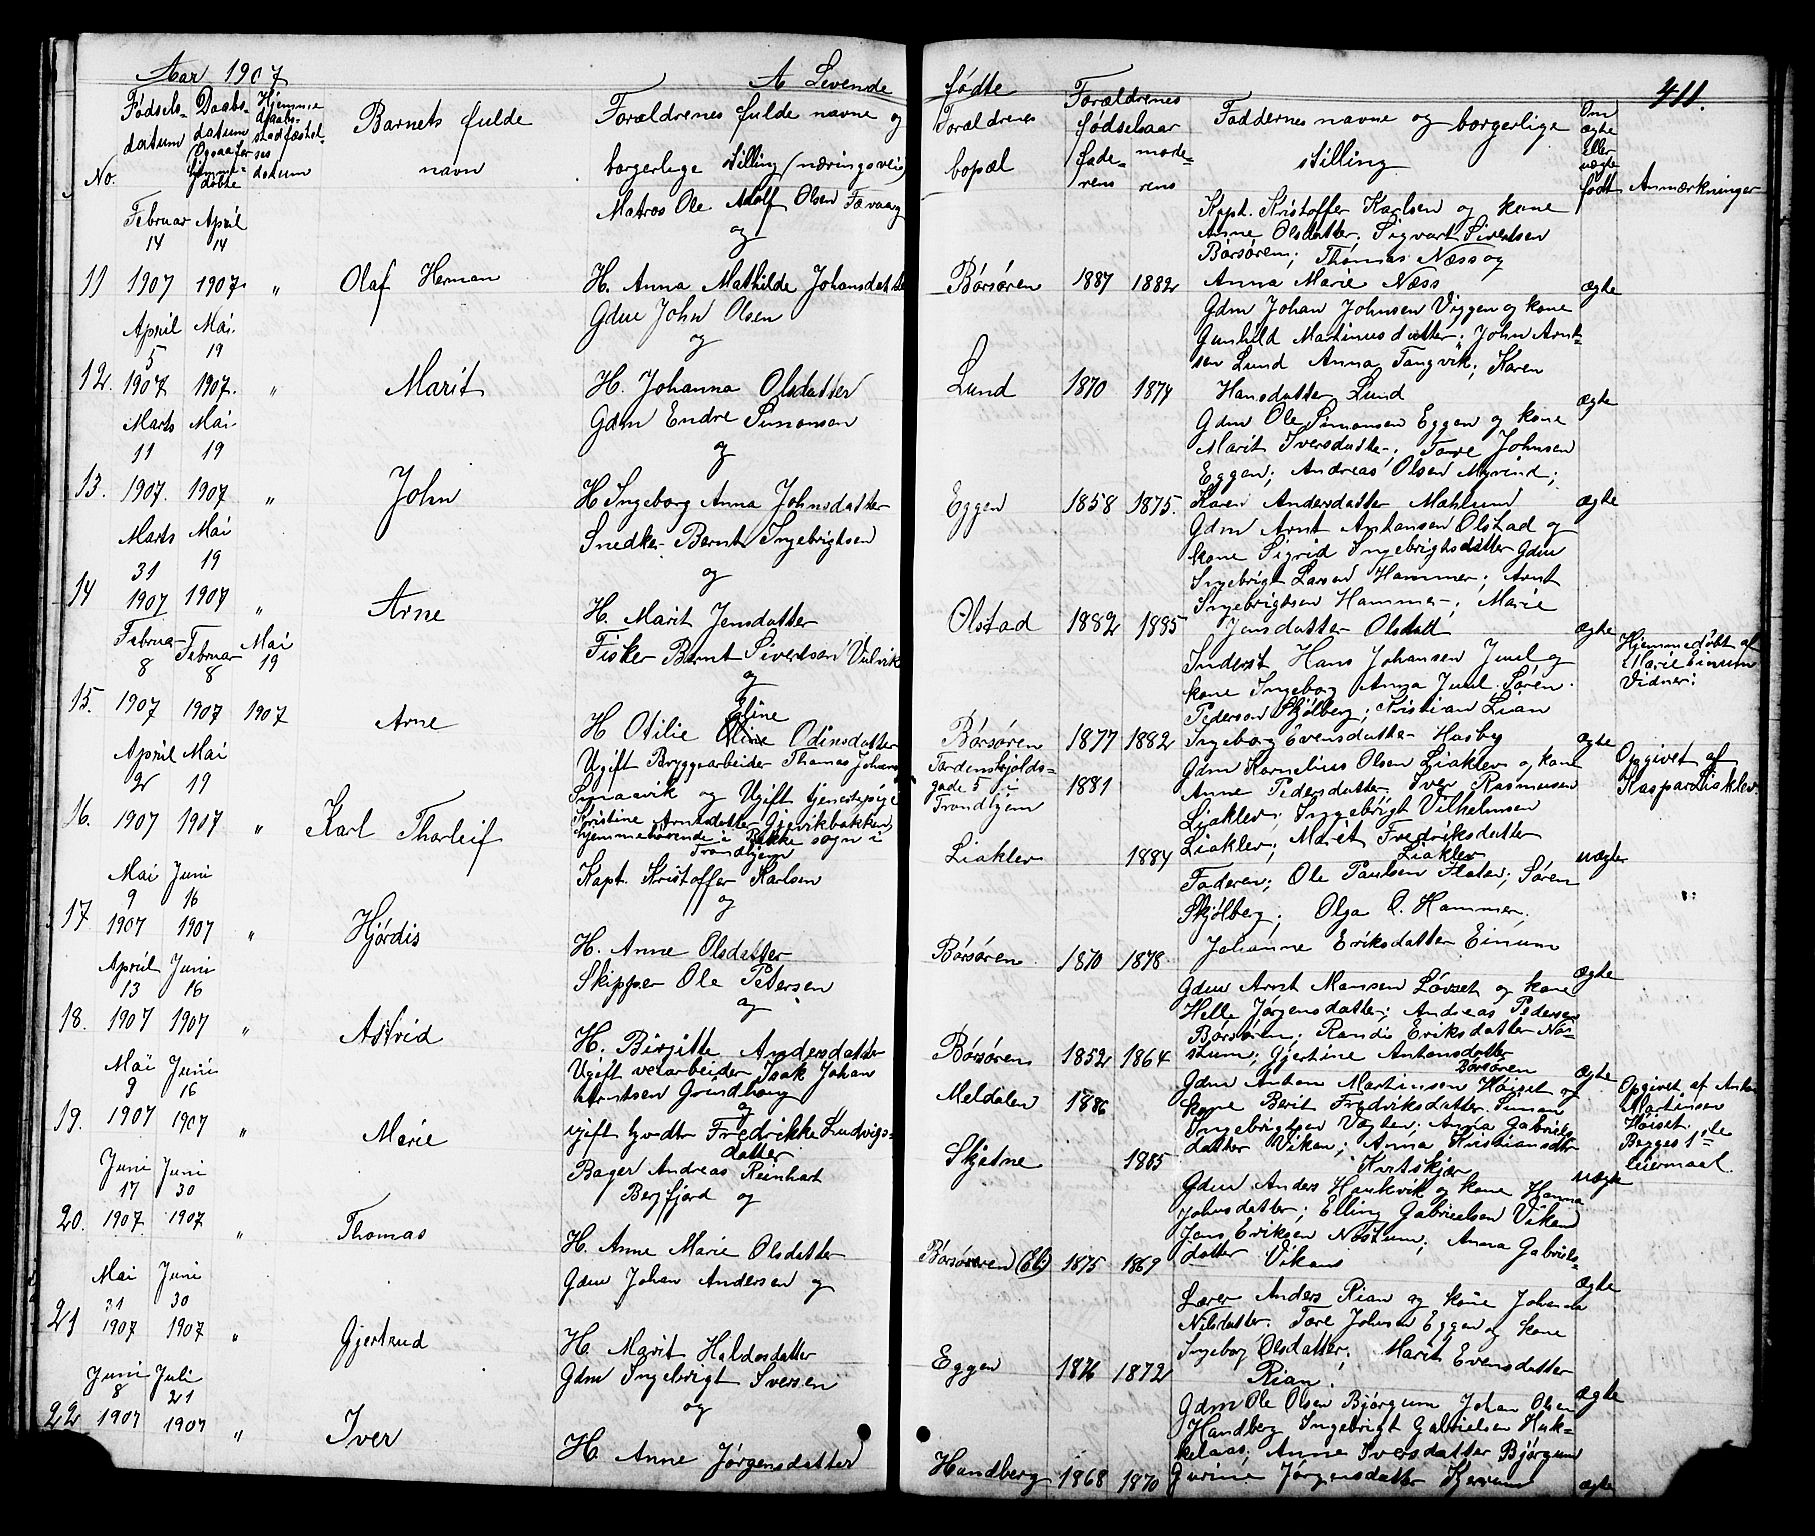 Aar 1907
A Levende
Fødsels-
datum
Daabs-
datum
Hjemme
daabs-
stadfæstel-
ses
datum
No.
Barnets fulde
navn
Forældrenes fulde navne og
borgerlege stilling (næringsvei)
Februar April
14 14
11 1907 1907. " Olaf Herman
Matros Ole Adolf Olsen Fævaag
og
H. Anna Mathilde Johansdatter
April Mai
5 19
12. 1907 1907. " Marit
Gdm John Olsen
og
H. Johanna Olsdatter
Marts Mai
11 19
13. 1907. 1907 " John
Gdm Endre Simonsen
og
H Ingeborg Anna Johnsdatter
Marts Mai
31 19
14 1907 1907 " Arne
Snedker Bernt Ingebrigtsen
og
H. Marit Jensdatter
Februar Februar Mai
8 8 19
15. 1907 1907 1907 Arne
Fisker Bernt Sivertsen Vulvik
og
Eline
H Otilie Odinsdatter
April Mai
2 19
16. 1907 1907 " Karl Tharleif
Ugift Bryggearbeider Thomas Johans
Smaavik og Ugift tjenestepige
Kristine Arntsdatter Gjevikbakken
hjemmehørende i Bakke sogn i
Trondhjem
Mai Juni
9 16
17 1907 1907 " Hjørdis
Kapt. Kristoffer Karlsen
og
H. Anne Olsdatter
April Juni
13 16
18. 1907 1907 " Astrid
Skipper Ole Petersen
og
H. Birgitte Andersdatter
Mai Juni
9 16
19. 1907 1907 " Marie
Ugift veiarbeider Isak Johan
Arntsen Grindhaug
og
ugift Gmdtr Fredrikke Ludvigs-
datter
Juni Juni
17 30
20. 1907. 1907 " Thomas
Bager Andreas Reinhart
Bergfjord og
H. Anne Marie Olsdatter
Mai Juni
31 30
21 1907 1907 " Gjertrud
Gdm Johan Andersen og
H. Marit Haldosdatter
Juni Juli
8 21
22 1907 1907 " Iver
Gdm Ingebrigt Iversen
og
H. Anne Jørgensdatter
411.
fødte
Forældrenes
bopæl
Forældrenes
fødselsaar
fade-
rens
mode-
rens
Faddernes navne og borgerlige
stilling
Om
ægte
eller
uægte
født
Anmærkninger
Kapt. Kristoffer Karlsen og kone
Anne Olsdatter; Sigvart Sivertsen
Børsøren; Thomas Næss og
Børsøren 1887 1882 Anna Marie Næss ægte
Gdm Johan Johnsen Viggen og kone
Gunhild Martinusdatter; John Arnt-
sen Lund Anna Tangvik; Karen
Lund 1870 1874 Hansdatter Lund ægte
Gdm Ole Simonsen Eggen og kone
Marit Iversdatter; Tore Johnsen
Eggen; Andreas Olsen Myrind;
Eggen 1858 1875. Karen Andersdatter Mahlum ægte
Gdm Arnt Antonsen Olstad og
kone Sigrid Ingebrigtsdatter Gdm
Ingebrigt Larsen Hammer; Arnt
Ingebrigtsen Hammer; Marie
Olstad 1882 1885 Jensdatter Olstad ægte
Inderst Hans Johansen Juul og
kone Ingeborg Anna Juul. Søren
Pederson Skjølberg; Kristian Lian
Børsøren 1877 1882 Ingeborg Evensdatter Hasby ægte
Hjemmedøbt af
Marie Einum
Vidner:
Tordenskjolds-
gade 5 i
Trondhjem 1881
Gdm Kornelius Olsen Liaklev og kone
Anne Pedersdatter Iver Rasmusen
Liaklev; Ingebrigt Vilhelmsen
Liaklev; Marit Fredriksdatter
Liaklev
Liaklev 1884 uægte
Opgivet af
Kaspar Lisklev
Faderen; Ole Paulsen Flaten; Søren
Skjølberg; Olga O. Hammer;
Børsøren 1870 1878 Johanne Eriksdatter Einum ægte
Gdm Arnt Monsen Løvset og kone
Helle Jørgensdatter; Andreas Pedersen
Børsøren; Randi Eriksdatter Nøs-
Børsøren 1852 1864 stum; Gjertine Antonsdatter
Børsøren ægte
Meldalen 1886
Gdm Anton Martinsen Høiset og
kone Berit Fredriksdatter Simon
Ingebrigtsen Vægten; Anna Gabriels
datter Vikan; Anna Kristiansdtr
Kvitskjær
Skjetne 1885 uægte
Opgivet af Anton
Martinsen
Høiset.
Begges 1ste
leiermaal.
Gdm Anders Haukvik og kone Hanna
Johnsdatter; Elling Gabrielsen Vikan
Jens Eriksen Nøstum; Anna Gabriels-
Børsøren (Eli) 1875 1869 datter Vikans ægte
Lærer Anders Rian og kone Johanna
Nilsdatter. Tore Johnsen Eggen og kone
Ingeborg Olsdatter; Marit Evensdatter
Eggen 1876 1872 Rian; ægte
Gdm Ole Olsen Bjørgum Johan Olsen
Handberg Ingebrigt Gabrielsen Huk-
kelaas; Anne Iversdatter Bjørgum
Handberg 1868 1870 Gurine Jørgensdatter Kjerrum ægte